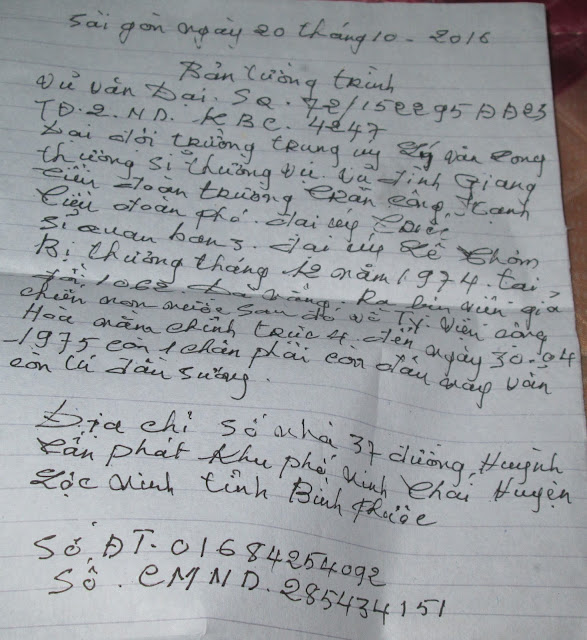 Sài gòn ngày 20 tháng 10 - 2016
Bản tường trình
Vũ văn Đai. SQ. 72/152295 ĐĐ23
TĐ. 2. NĐ. KBC. 4247
Đại đội trưởng trung úy Lý văn Cong
thường sĩ thường vụ. Vũ đình Giang
tiểu đoàn trưởng Trần Công Hạnh
tiểu đoàn phó. đại úy
sĩ quan ban 3. đại úy Lê Thơm
Bị thương tháng 12 năm 1974. tại
đồi 1062 Đà nẵng. Ra
chiến non nước sau đó về T.Y. Viện công
Hoà năm chỉnh trực 4. đến ngày 30-04
-1975 còn 1 chân phải còn đầu
còn đầu sương.
Địa chỉ số nhà 37 đường Huỳnh
tấn phát khu phố ninh thái Huyện
Lộc ninh tỉnh Bình Phước
Số ĐT. 01684254092
Số. CMND. 285434151